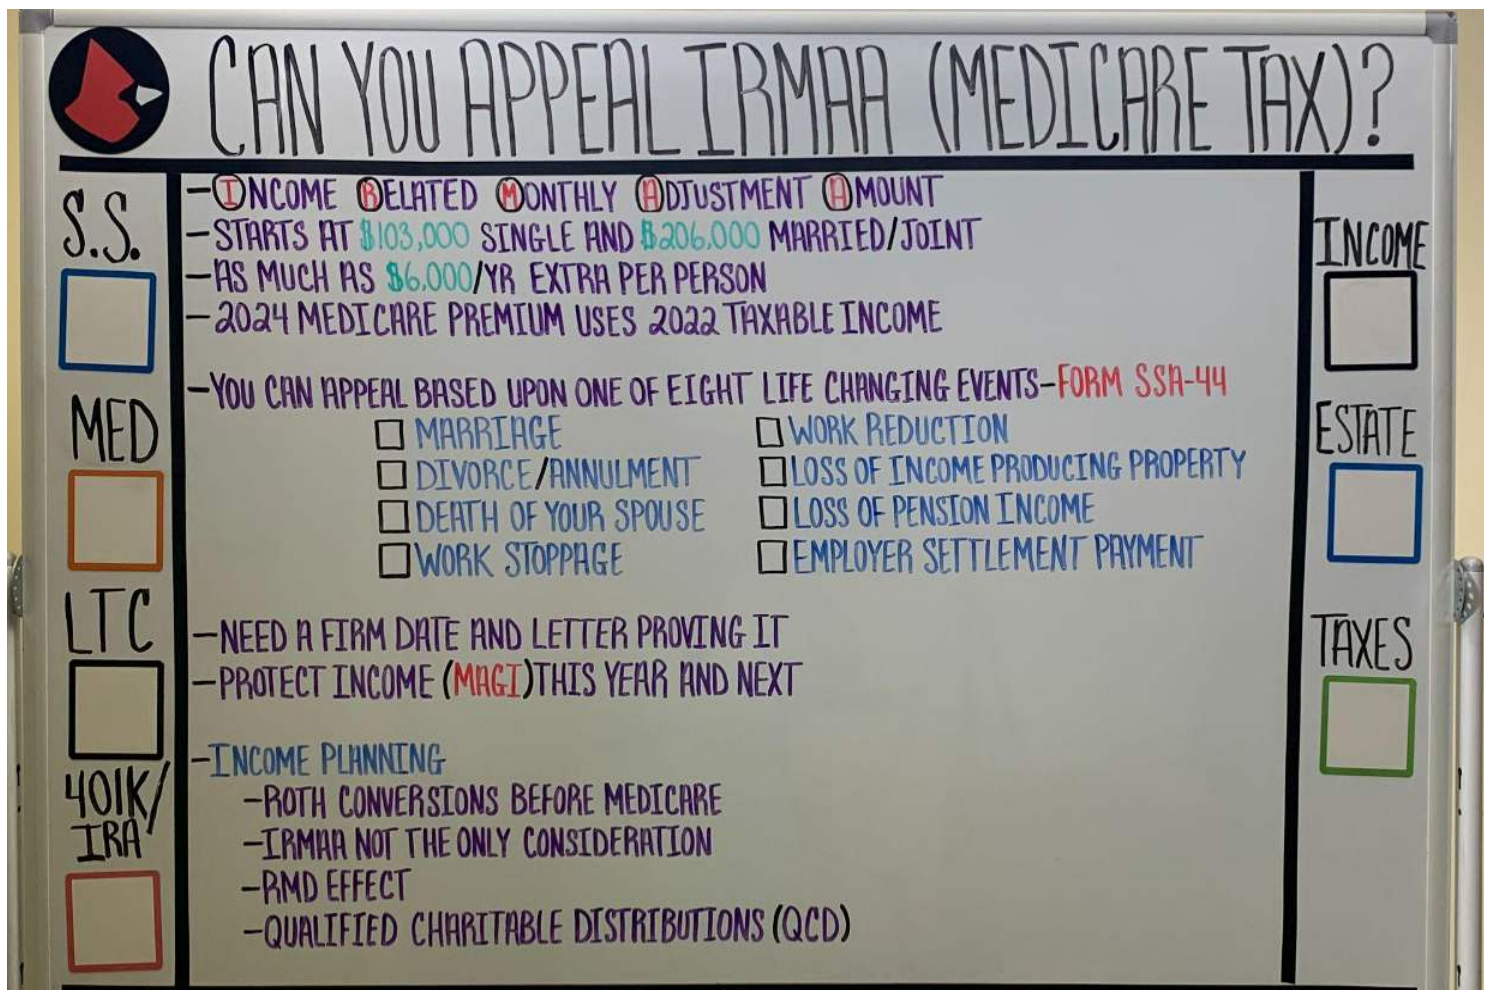 CAN YOU APPEAL IRMAA (MEDICARE TAX)?
S.S.
MED
LTC
401K/
IRA
-INCOME RELATED MONTHLY ADJUSTMENT AMOUNT
-STARTS AT $103,000 SINGLE AND $206,000 MARRIED/JOINT
-AS MUCH AS $6,000/YR EXTRA PER PERSON
-2024 MEDICARE PREMIUM USES 2022 TAXABLE INCOME
-YOU CAN APPEAL BASED UPON ONE OF EIGHT LIFE CHANGING EVENTS-FORM SSA-44
MARRIAGE
DIVORCE/ANNULMENT
DEATH OF YOUR SPOUSE
WORK STOPPAGE
WORK REDUCTION
LOSS OF INCOME PRODUCING PROPERTY
LOSS OF PENSION INCOME
EMPLOYER SETTLEMENT PAYMENT
-NEED A FIRM DATE AND LETTER PROVING IT
-PROTECT INCOME (MAGI) THIS YEAR AND NEXT
-INCOME PLANNING
-ROTH CONVERSIONS BEFORE MEDICARE
-IRMAA NOT THE ONLY CONSIDERATION
-RMD EFFECT
-QUALIFIED CHARITABLE DISTRIBUTIONS (QCD)
INCOME
ESTATE
TAXES